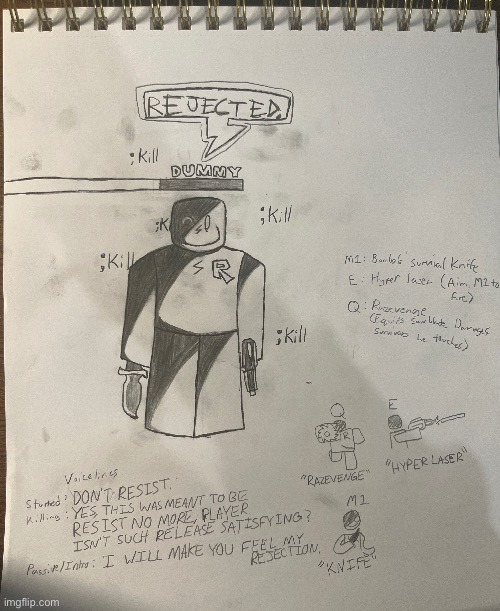 REJECTED.
;Kill
DUMMY
;K
;Kill
;Kill
R
;Kill
M1: Bombo's survival Knife
E: Hyper laser (Aim, M1 to
fire)
Q: Razevenge
(Equits Damages
survivors he touches)
Q
E
R
"RAZEVENGE"
"HYPER LASER"
M1
"KNIFE"
Voicelines
Stunned: DON'T RESIST.
Killing: YES THIS WAS MEANT TO BE
RESIST NO MORE, PLAYER
ISN'T SUCH RELEASE SATISFYING?
Passive/Intro: I WILL MAKE YOU FEEL MY
REJECTION.
imgflip.com